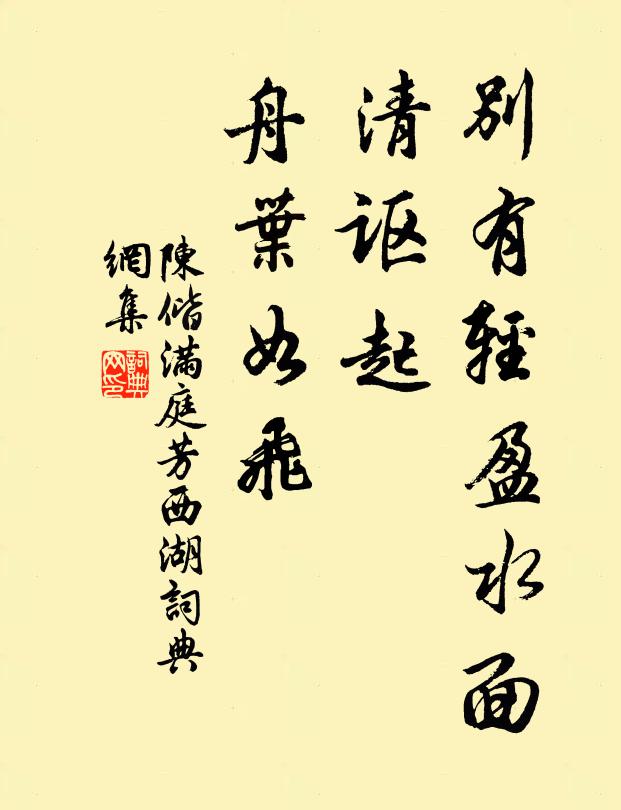 別有輕盈水面
清讴起
舟葉如飛
陳偕滿庭芳西湖詞典
網集
詞典
网印